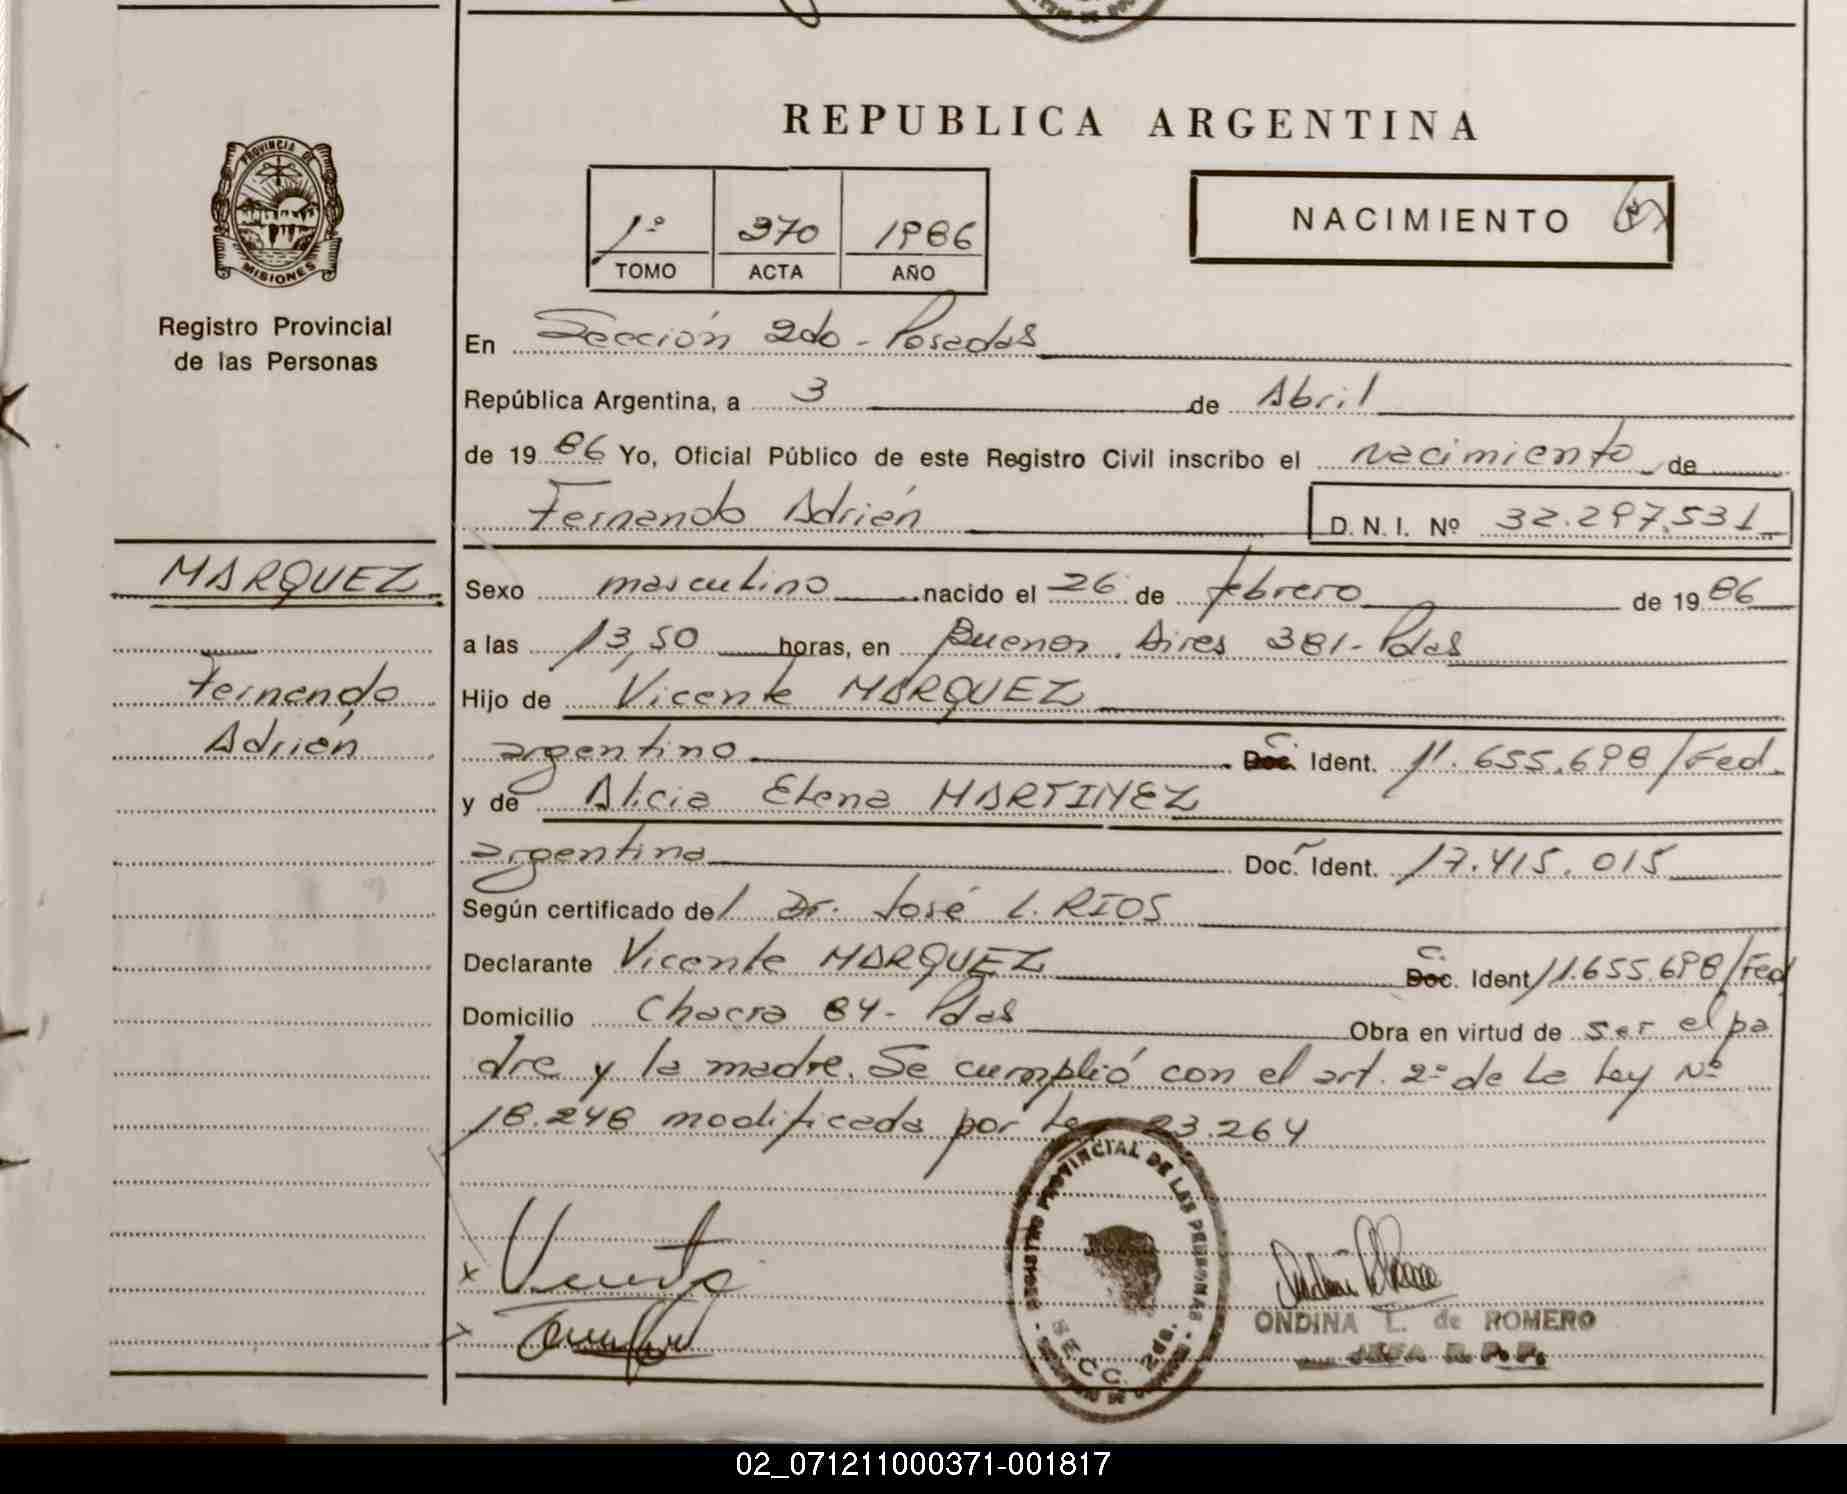 REPUBLICA ARGENTINA
PROVINCIA DE
MISIONES
Registro Provincial
de las Personas
1º 370 1986
TOMO ACTA AÑO
NACIMIENTO
En Sección 2do - Posadas
República Argentina, a 3 de Abril
de 19 86 Yo, Oficial Público de este Registro Civil inscribo el nacimiento de
Fernando Adrián D. N. I. Nº 32.297.531
MARQUEZ
Fernando
Adrián
Sexo masculino nacido el 26 de febrero de 19 86
a las 13,50 horas, en Buenos Aires 381 - Pdas
Hijo de Vicente MARQUEZ
argentino C. Doc. Ident. 11.655.698/Fed.
y de Alicia Elena MARTINEZ
argentina Doc. Ident. 17.415.015
Según certificado del Dr. José L. RIOS
Declarante Vicente MARQUEZ C. Doc. Ident 11.655.698/Fed
Domicilio Chacra 84 - Pdas Obra en virtud de ser el pa
dre y la madre. Se cumplió con el art. 2º de la Ley Nº
18.248 modificada por Ley 23.264
REGISTRO PROVINCIAL DE LAS PERSONAS
SECC. 2da.
ONDINA L. de ROMERO
JEFA R. P. P.
02_071211000371-001817